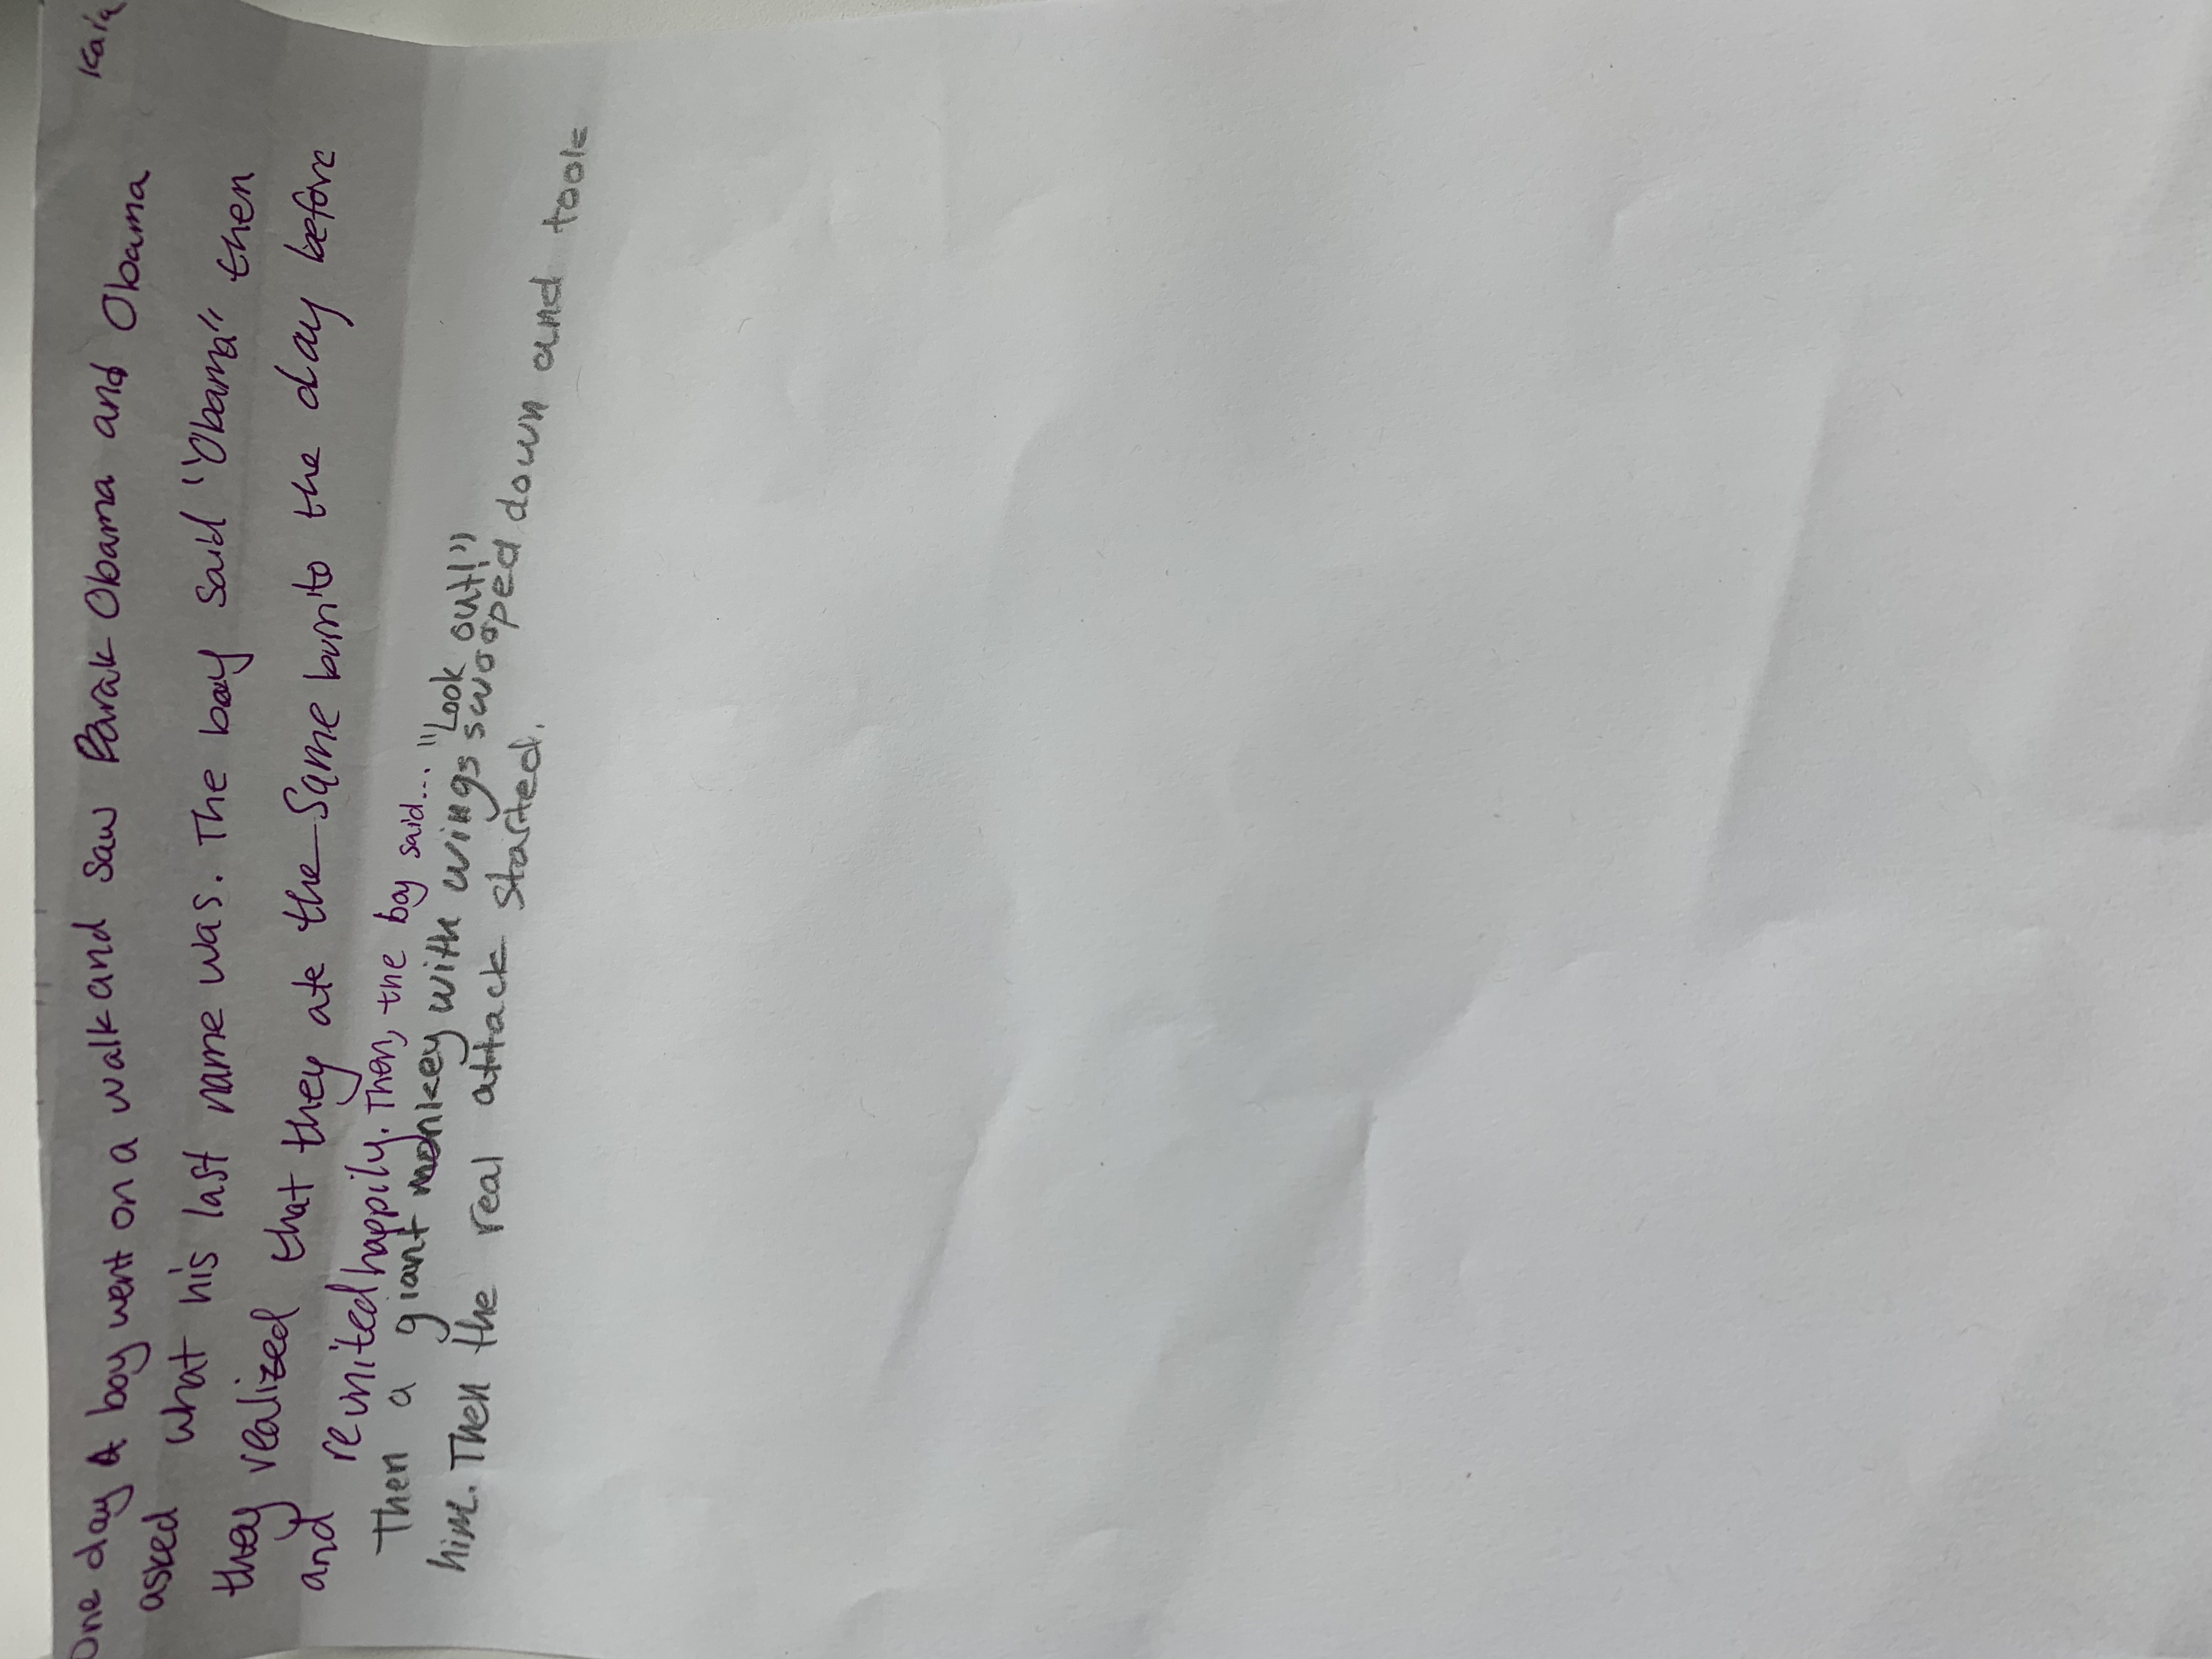 Kaia
One day A boy went on a walk and saw Barak Obama and Obama
asked what his last name was. The boy said "Obama" then
they realized that they ate the same burrito the day before
and reunited happily. Then, the boy said... "Look out!"
Then a giant monkey with wings swooped down and took
him. Then the real attack started.